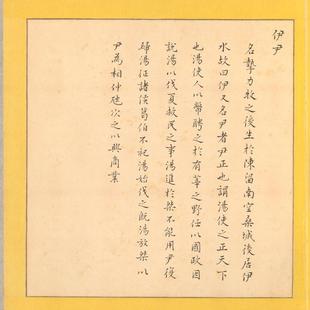 伊尹
名摯力牧之後生於陳留南空桑城後居伊
水故曰伊又名尹者尹正也謂湯使之正天下
也湯使人以幣聘之於有莘之野任以國政因
說湯以伐夏救民之事湯進於桀不能用尹復
歸湯征諸侯葛伯不祀湯始伐之既湯放桀以
尹為相仲虺次之以興商業